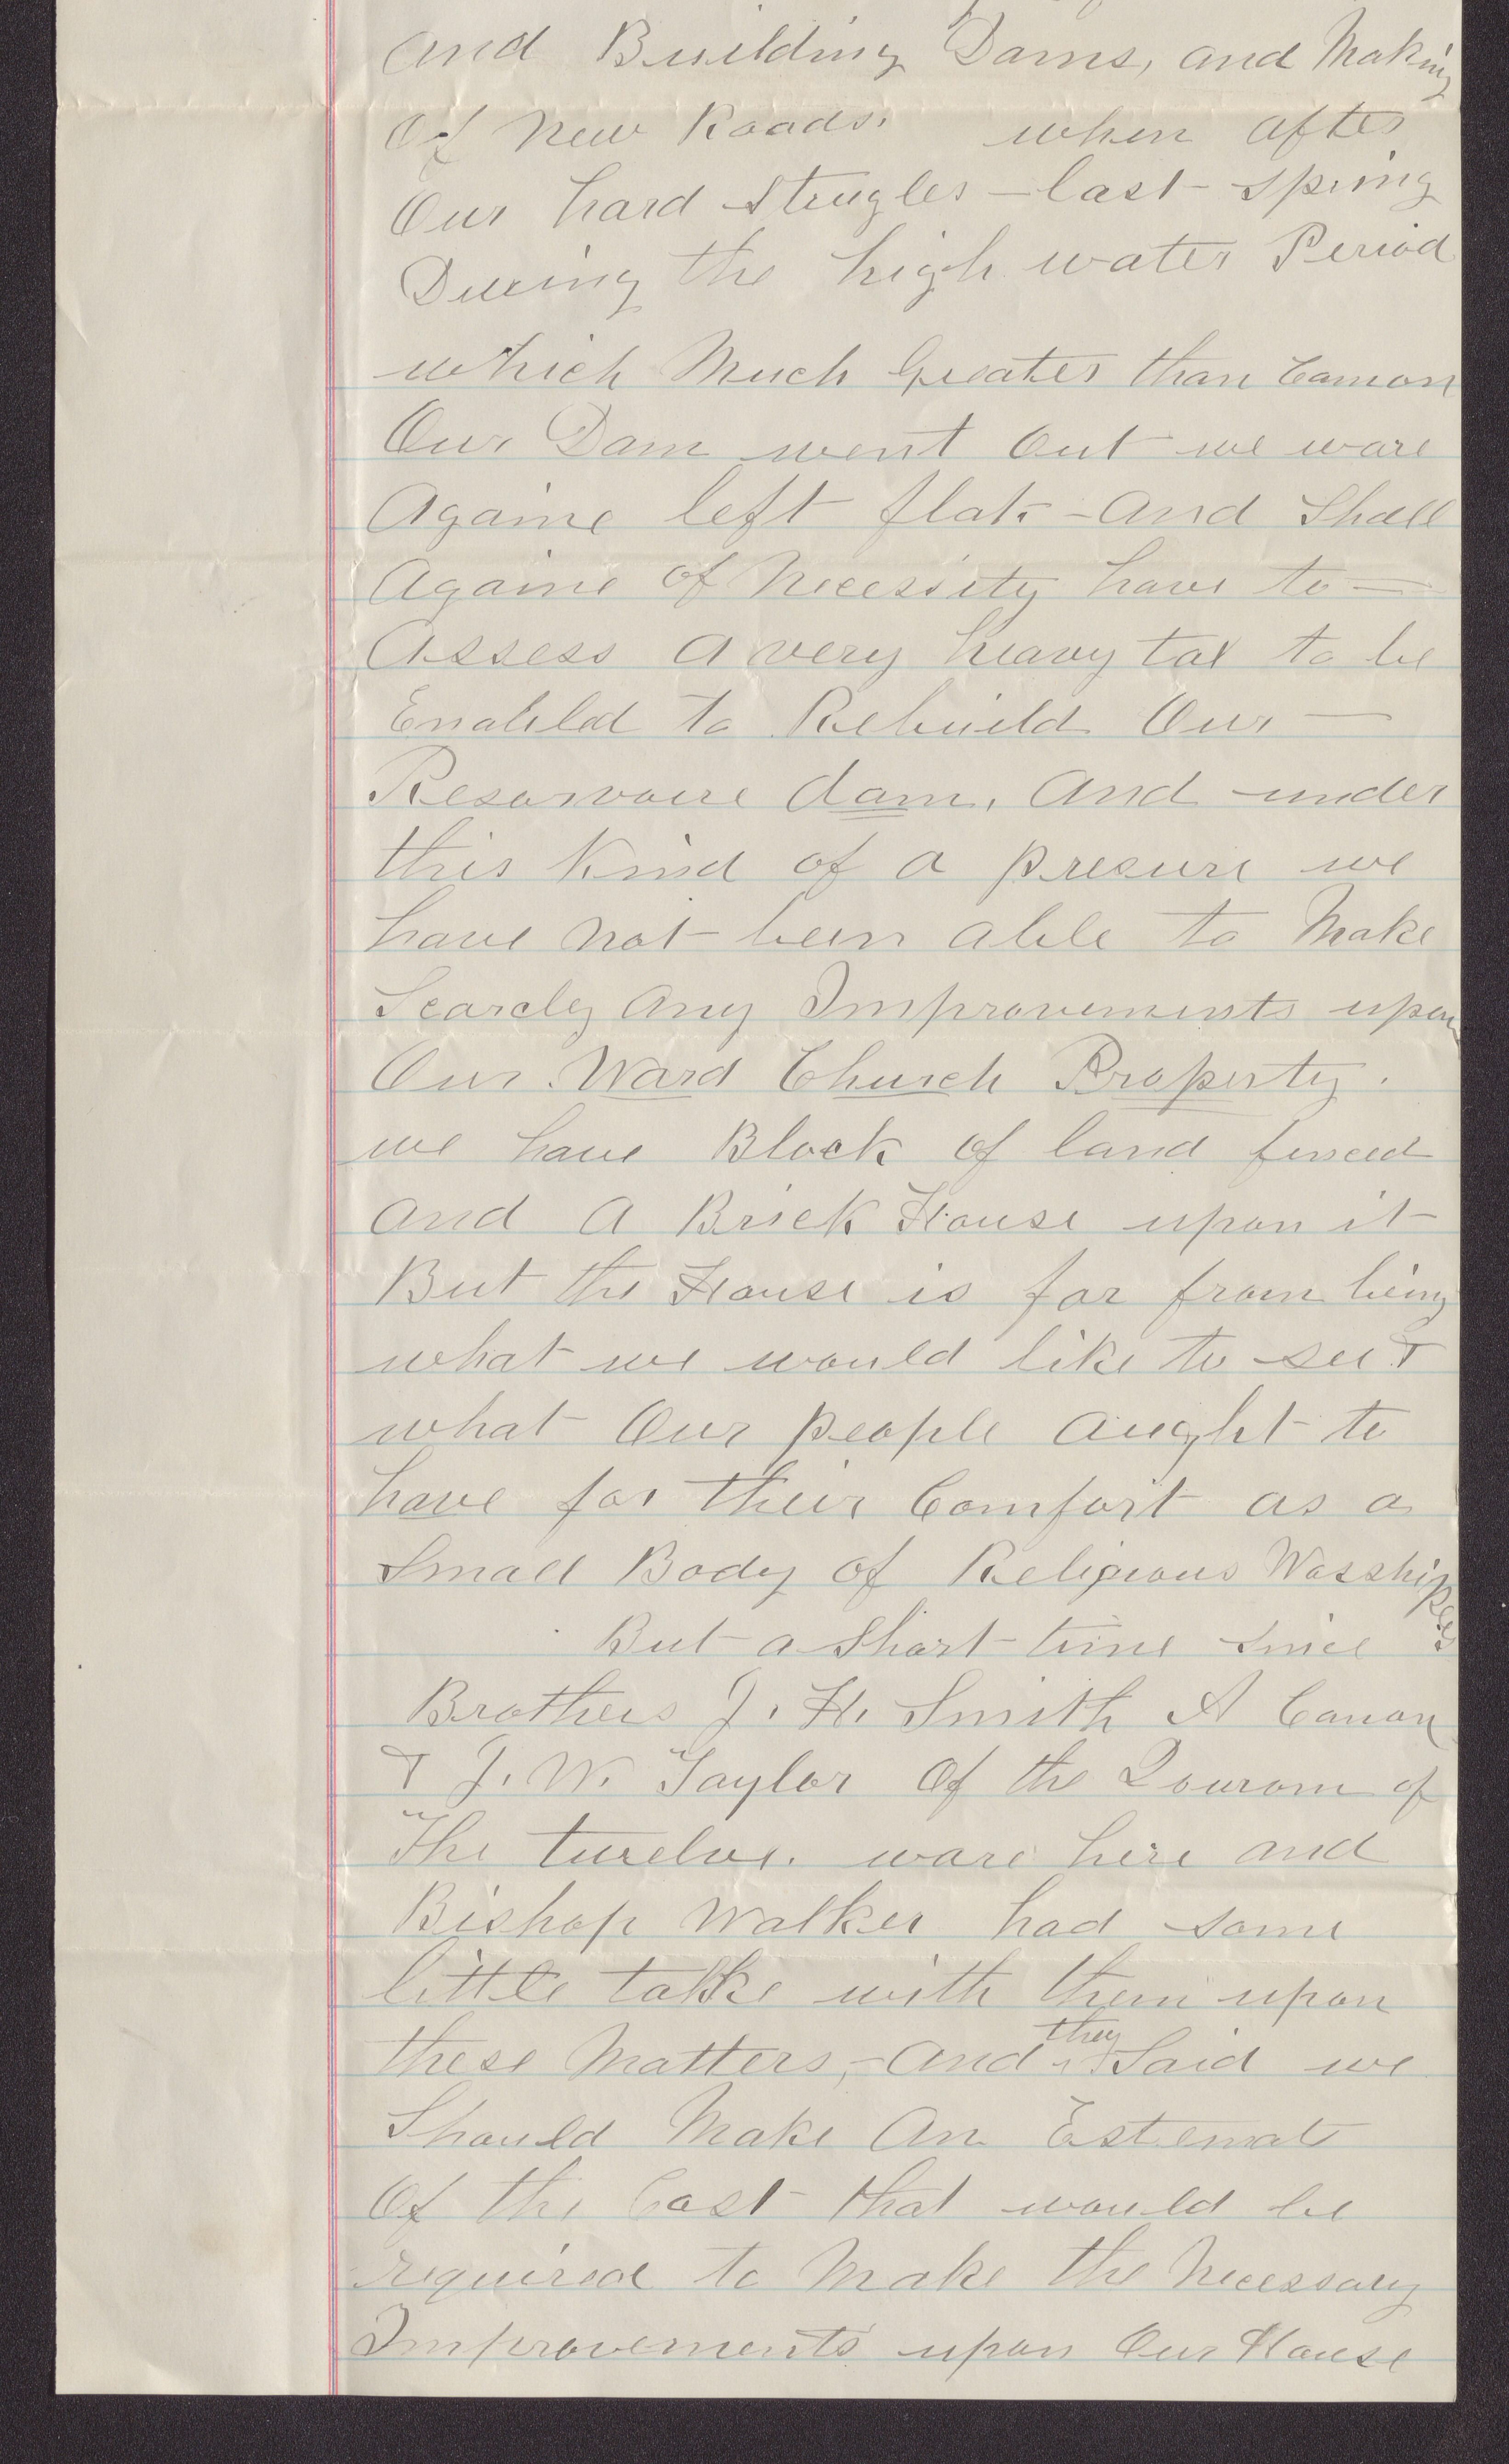 and Building Dams, and Making
Of New Roads. when after
Our hard Strugles - last spring
During the high water Period
which Much Greater than Comon
Our Dam went out we ware
Againe left flat - and Shall
Againe of Necessity have to -
Assess a very heavy tax to be
Enabled to Rebuild Our -
Resarvoure dam, and under
this Kind of a presure we
have not been able to Make
Scarcley any Improvements upon
Our Ward Church Property.
we have Block of land fenced
and a Brick House upon it
But the House is far from being
what we would like to see &
what Our people aught to
have for their Comfort as a
Small Body of Religious Wosshipers
But a Short time since
Brothers J. H. Smith A Canon
& J. W. Taylor Of the Qourom of
The twelve. ware here and
Bishop Walker had some
little talke with them upon
these Matters, - and they Said we
Should Make An Estemate
Of the Cost that would be
required to Make the Necessary
Improvements upon Our House